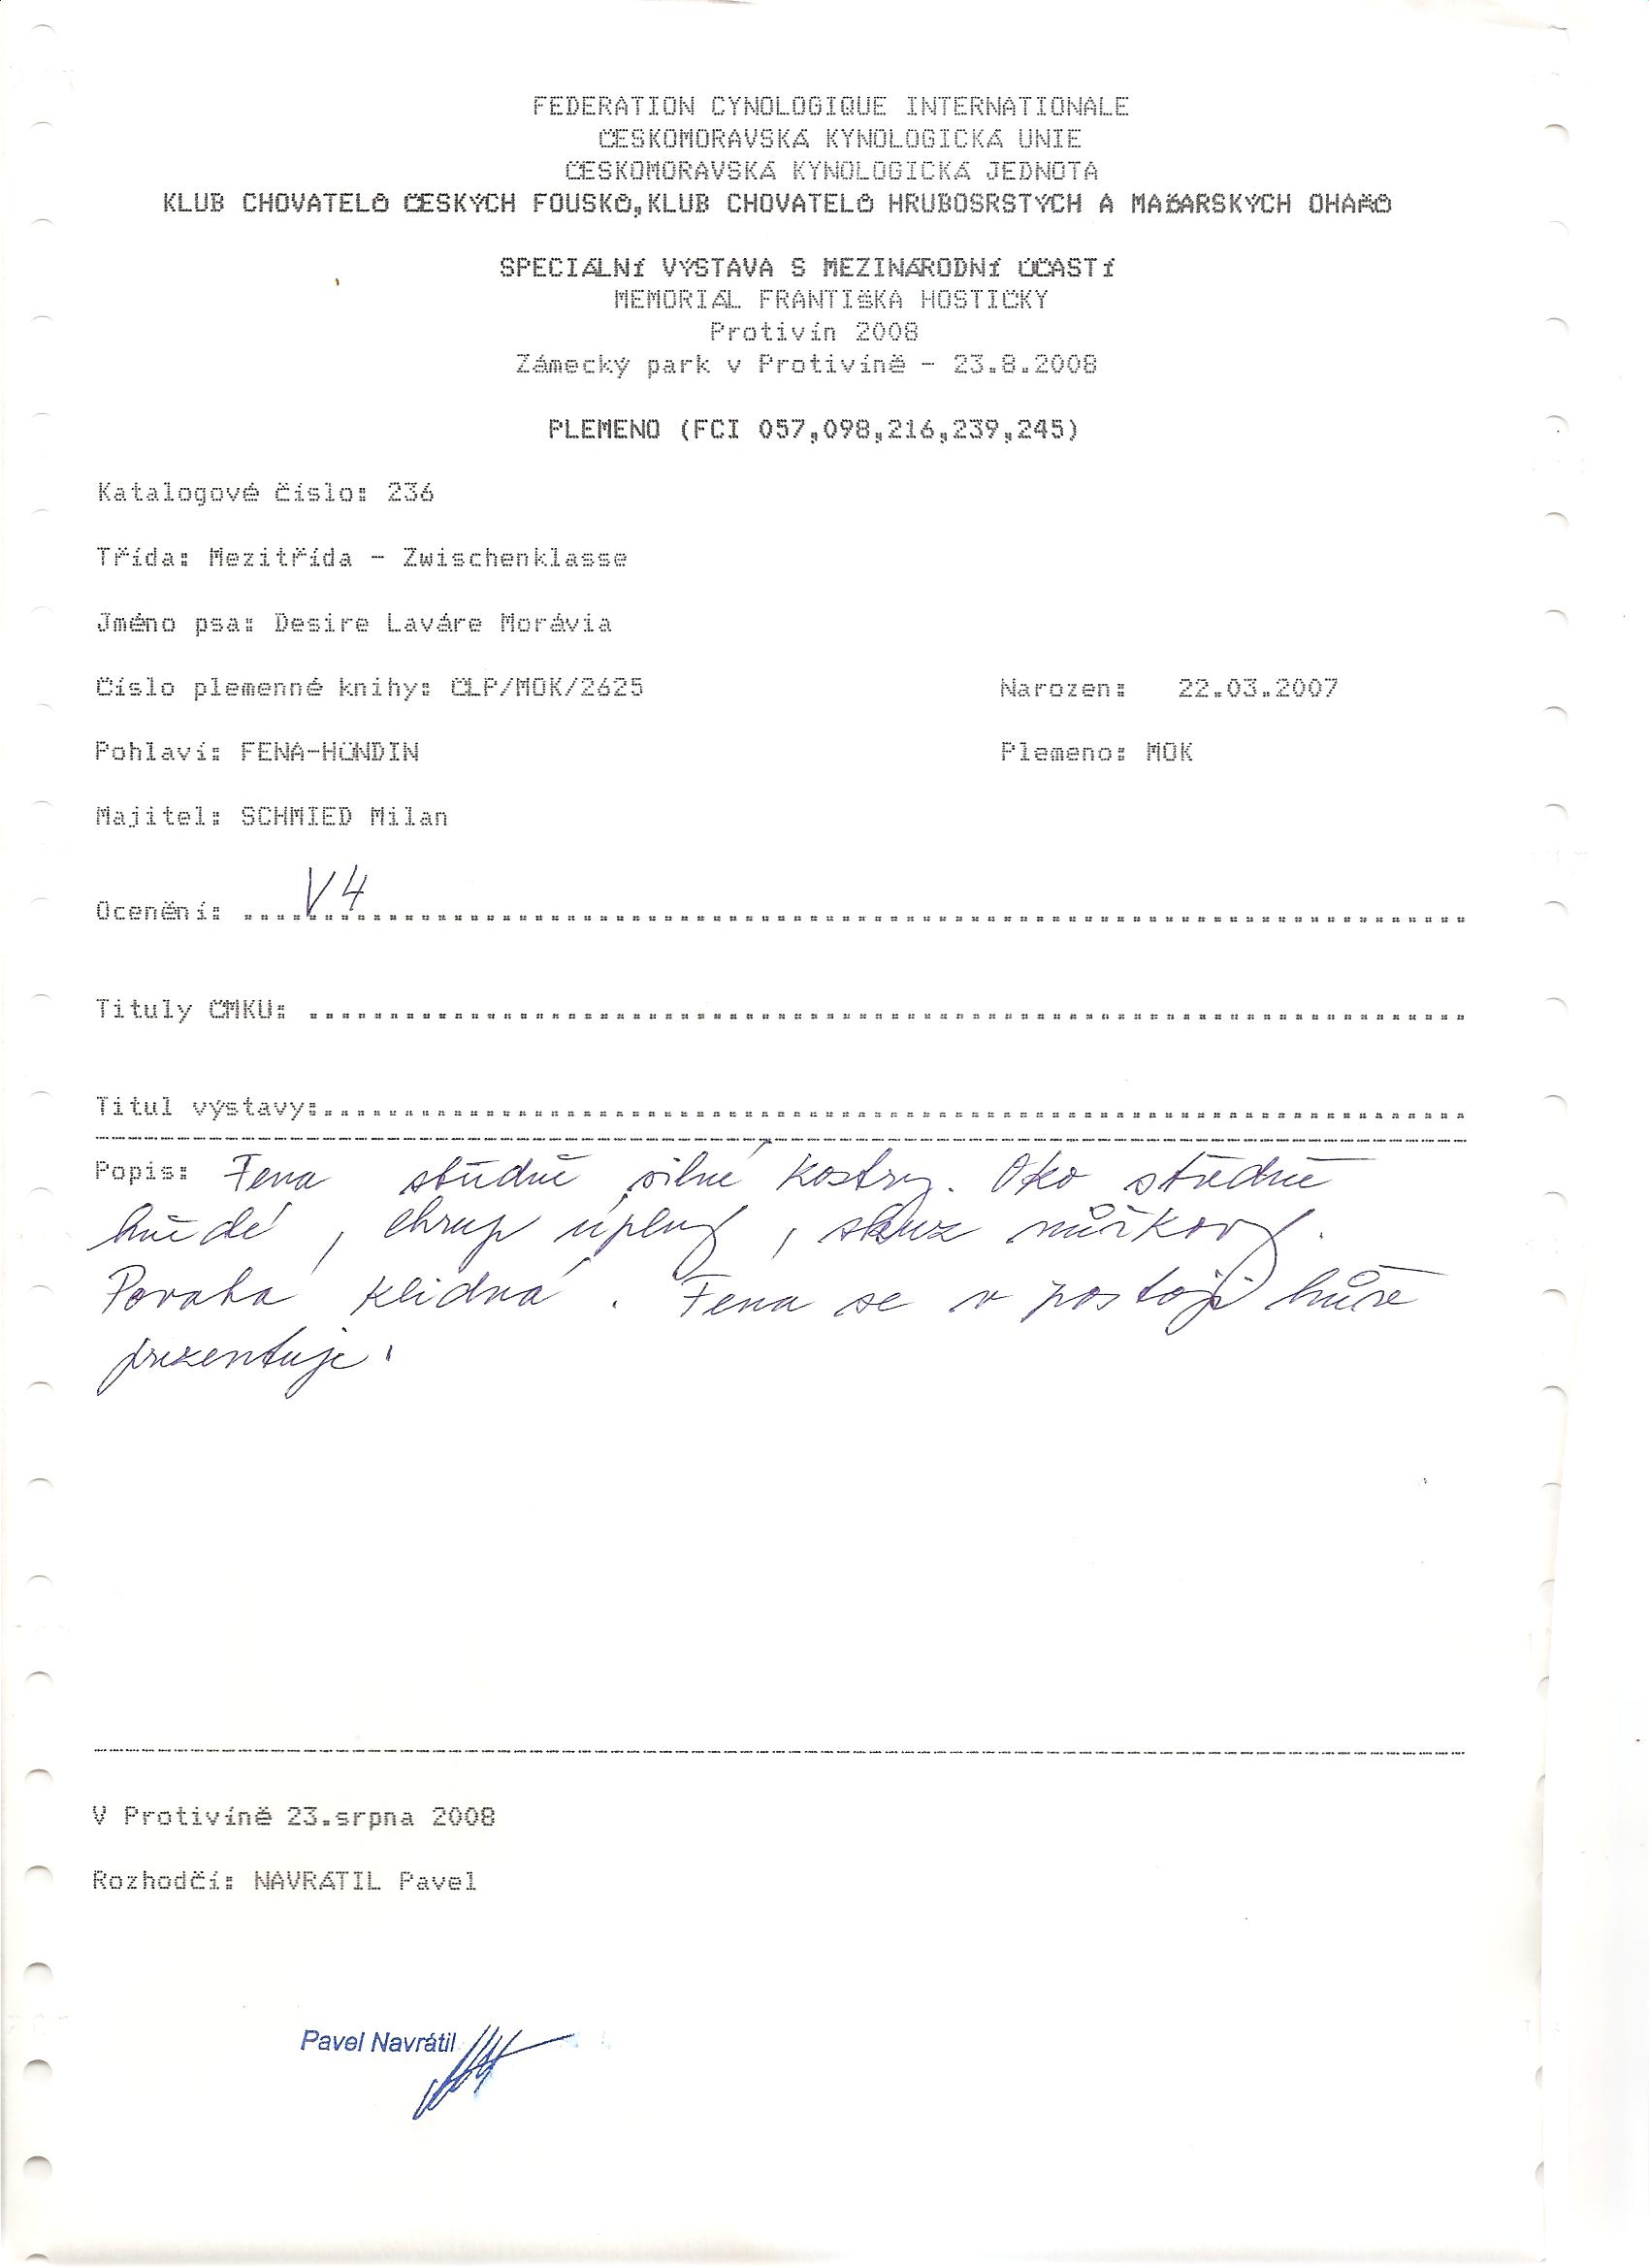 FEDERATION CYNOLOGIQUE INTERNATIONALE
ČESKOMORAVSKÁ KYNOLOGICKÁ UNIE
ČESKOMORAVSKÁ KYNOLOGICKÁ JEDNOTA
KLUB CHOVATELŮ ČESKÝCH FOUSKŮ,KLUB CHOVATELŮ HRUBOSRSTÝCH A MAĎARSKÝCH OHAŘŮ
SPECIÁLNÍ VÝSTAVA S MEZINÁRODNÍ ÚČASTÍ
MEMORIÁL FRANTIŠKA HOSTIČKY
Protivín 2008
Zámecký park v Protivíně - 23.8.2008
PLEMENO (FCI 057,098,216,239,245)
Katalogové číslo: 236
Třída: Mezitřída - Zwischenklasse
Jméno psa: Desire Laváre Morávia
Číslo plemenné knihy: ČLP/MOK/2625 Narozen: 22.03.2007
Pohlaví: FENA-HÜNDIN Plemeno: MOK
Majitel: SCHMIED Milan
Ocenění: V4
Tituly ČMKU:
Titul výstavy:
Popis: Fena středně silné kostry. Oko středně
hnědé, chrup úplný, skus nůžkový.
Povaha klidná. Fena se v postoji hůře
prezentuje.
V Protivíně 23.srpna 2008
Rozhodčí: NAVRÁTIL Pavel
Pavel Navrátil